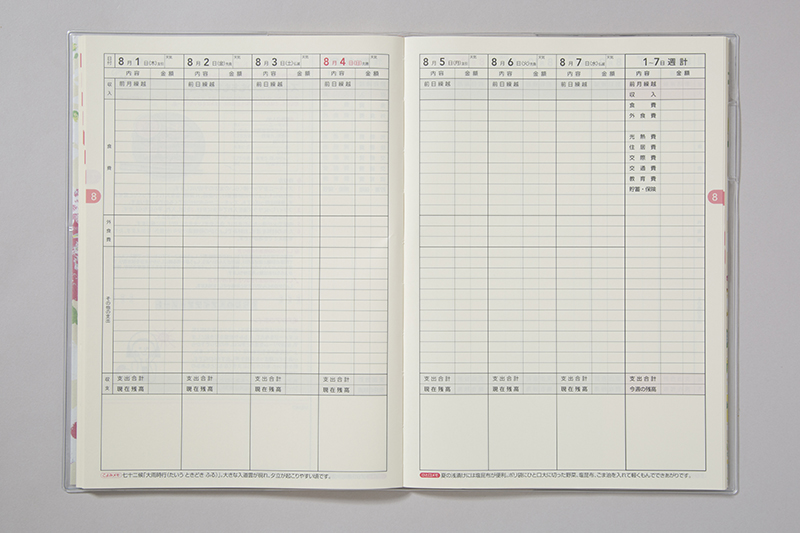 8月1日(木)
8月2日(金)
8月3日(土)
8月4日(日)
内容 金額 内容 金額 内容 金額 内容 金額
収入 前月繰越 前日繰越 前日繰越 前日繰越
食費
外食費
その他の支出
収支 支出合計 支出合計 支出合計 支出合計
現在残高 現在残高 現在残高 現在残高
8
七十二候「大雨時行(たいう ときどき ふる)」。大きな入道雲が現れ、夕立が起こりやすい頃です。
8月5日(月)
8月6日(火)
8月7日(水)
1-7日 週計
内容 金額 内容 金額 内容 金額 内容 金額
前日繰越 前日繰越 前日繰越 前月繰越
収入
食費
外食費
光熱費
住居費
交際費
交通費
教育費
貯蓄・保険
支出合計 支出合計 支出合計 支出合計
現在残高 現在残高 現在残高 今週の残高
8
夏の浅漬けには塩昆布が便利。ポリ袋にひと口大に切った野菜、塩昆布、ごま油を入れて軽くもんでできあがりです。